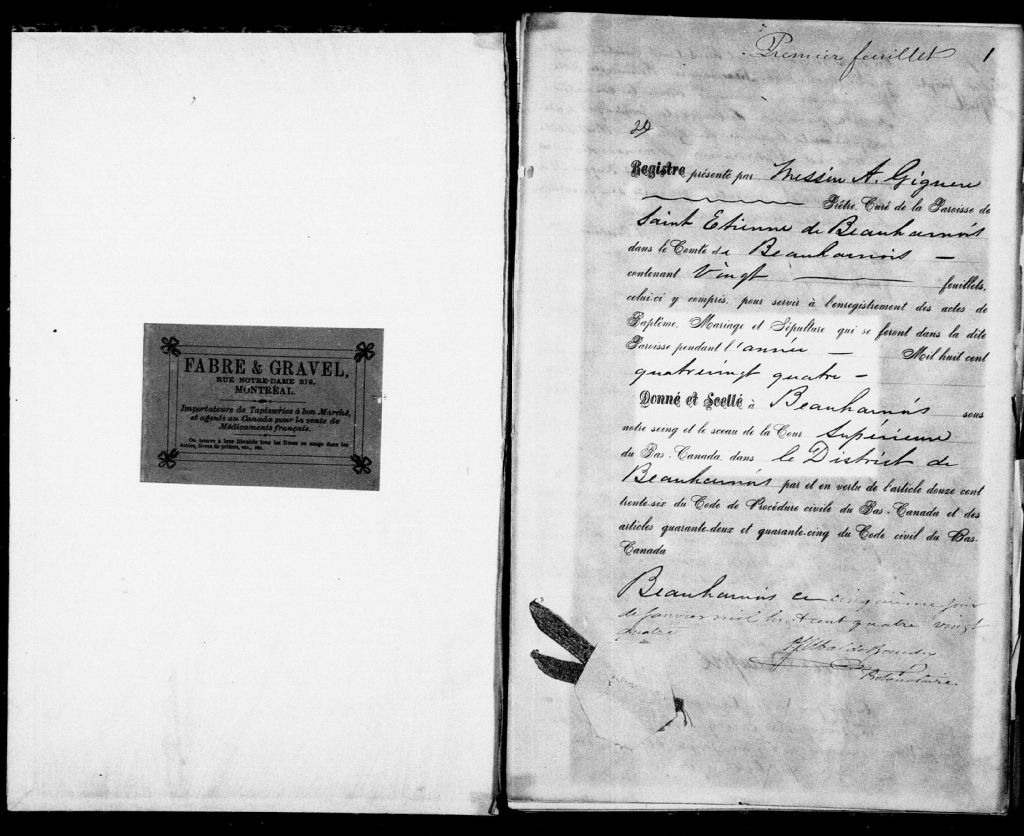 FABRE & GRAVEL,
RUE NOTRE-DAME 219,
MONTRÉAL.
Importateurs de Tapisseries à bon Marché,
et agents au Canada pour la vente de
Médicaments français.
On trouve à leur librairie tous les livres en usage dans les
écoles, livres de prières, etc., etc.
Premier feuillet 1
Registre présenté par Messire A. Giguere
Prêtre, Curé de la Paroisse de
Saint Etienne de Beauharnois
dans le Comté de Beauharnois
contenant Vingt feuillets,
celui-ci y compris, pour servir à l'enregistrement des actes de
Baptême, Mariage et Sépulture qui se feront dans la dite
Paroisse pendant l'année Mil huit cent
quatrevingt quatre
Donné et Scellé à Beauharnois sous
notre seing et le sceau de la Cour Supérieure
du Bas-Canada dans le District de
Beauharnois par et en vertu de l'article douze cent
trente-six du Code de Procédure civile du Bas-Canada et des
articles quarante-deux et quarante-cinq du Code civil du Bas-
Canada
Beauharnois ce cinquième jour
de Janvier mil huit cent quatre vingt
quatre
Protonotaire.